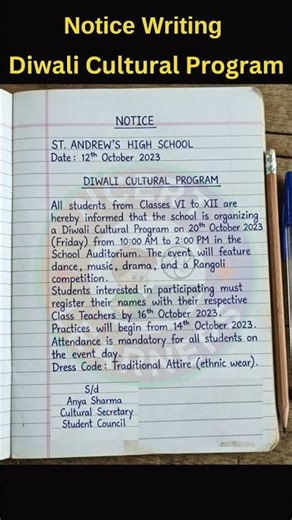 Notice Writing
Diwali Cultural Program
NOTICE
ST. ANDREW'S HIGH SCHOOL
Date: 12th October 2023
DIWALI CULTURAL PROGRAM
All students from Classes VI to XII are
hereby informed that the school is organizing
a Diwali Cultural Program on 20th October 2023
(Friday) from 10:00 AM to 2:00 PM in the
School Auditorium. The event will feature
dance, music, drama, and a Rangoli
competition.
Students interested in participating must
register their names with their respective
Class Teachers by 16th October 2023.
Practices will begin from 14th October 2023.
Attendance is mandatory for all students on
the event day.
Dress Code: Traditional Attire (ethnic wear).
S/d
Anya Sharma
Cultural Secretary
Student Council